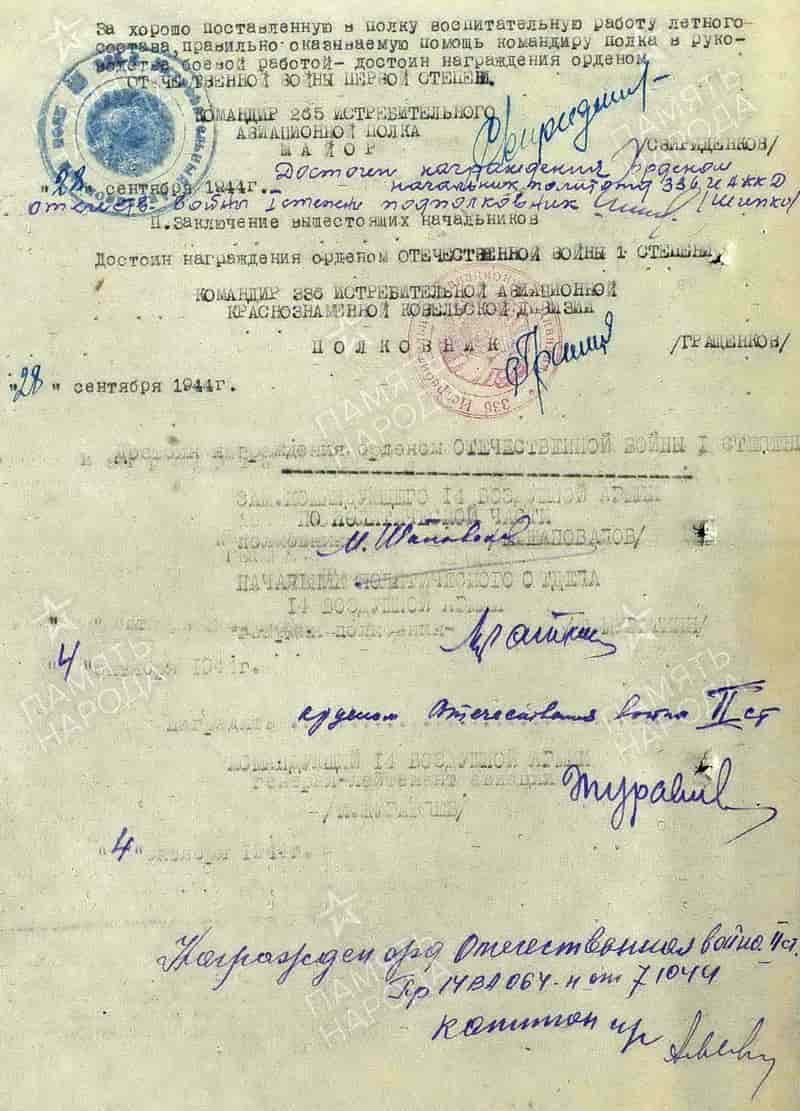 За хорошо поставленную в полку воспитательную работу летного
состава, правильно оказываемую помощь командиру полка в руко-
водстве боевой работой- достоин награждения орденом
ОТЕЧЕСТВЕННОЙ ВОЙНЫ ПЕРВОЙ СТЕПЕНИ.
КОМАНДИР 265 ИСТРЕБИТЕЛЬНОГО
АВИАЦИОННОЙ ПОЛКА
МАЙОР /СВИРИДЕНКОВ/
Достоин награждения орденом
"28" сентября 1944г. начальник политотд 336 ИАККД
отечеств войны I степени подполковник /Шипко/
II. Заключение вышестоящих начальников
Достоин награждения орденом ОТЕЧЕСТВЕННОЙ ВОЙНЫ 1 СТЕПЕНИ
КОМАНДИР 336 ИСТРЕБИТЕЛЬНОЙ АВИАЦИОННОЙ
КРАСНОЗНАМЕННОЙ КОВЕЛЬСКОЙ ДИВИЗИИ
ПОЛКОВНИК /ГРАЩЕНКОВ/
"28" сентября 1944г.
Достоин награждения орденом ОТЕЧЕСТВЕННОЙ ВОЙНЫ I СТЕПЕНИ
ЗАМ.КОМАНДУЮЩЕГО 14 ВОЗДУШНОЙ АРМИИ
ПО ПОЛИТИЧЕСКОЙ ЧАСТИ
М. Шаповалов /ШАПОВАЛОВ/
НАЧАЛЬНИК ПОЛИТИЧЕСКОГО ОТДЕЛА
14 ВОЗДУШНОЙ АРМИИ
"4" 1944г.
орденом Отечественная война II ст
КОМАНДУЮЩИЙ 14 ВОЗДУШНОЙ АРМИИ
Генерал-лейтенант авиации
Журавлев
"4"
Награжден орд Отечественная война II ст.
Пр 14 ВА 064-н от 7 10 44
капитан
ПАМЯТЬ НАРОДА